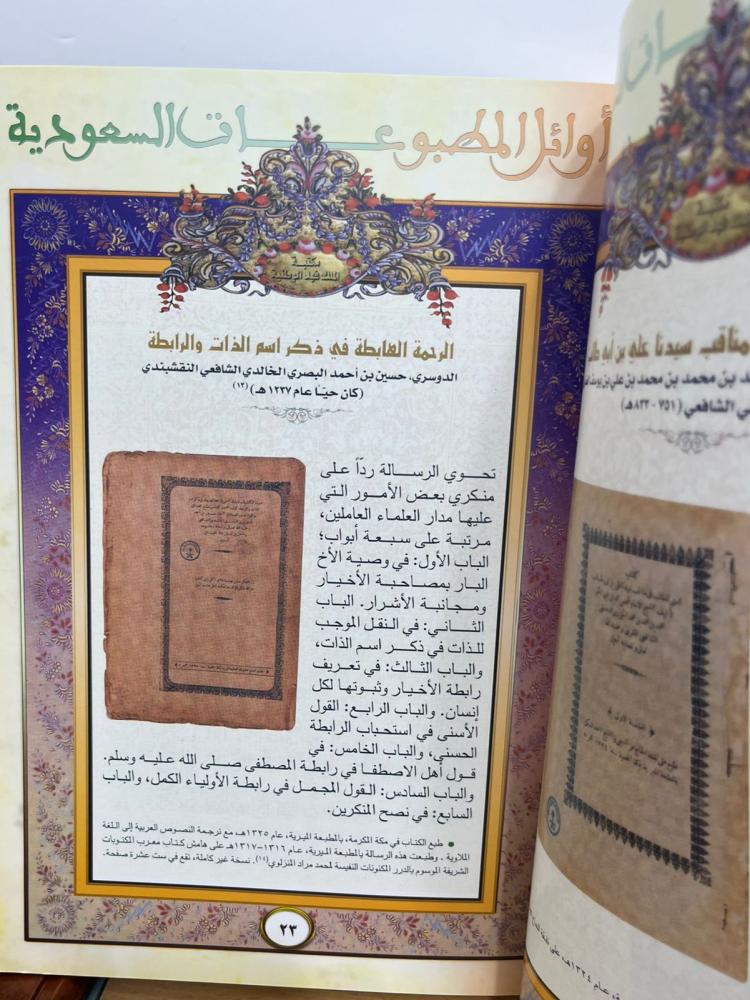 أوائل المطبوعات السعودية
مكتبة
الملك فهد الوطنية
الرحمة الهابطة في ذكر اسم الذات والرابطة
الدوسري، حسين بن أحمد البصري الخالدي الشافعي النقشبندي
(كان حيّا عام ١٢٣٧ هـ) (١٣)
تحوي الرسالة رداً على
منكري بعض الأمور التي
عليها مدار العلماء العاملين،
مرتبة على سبعة أبواب؛
الباب الأول: في وصية الأخ
البار بمصاحبة الأخيار
ومجانبة الأشرار. الباب
الثاني: في النقل الموجب
للذات في ذكر اسم الذات،
والباب الثالث: في تعريف
رابطة الأخيار وثبوتها لكل
إنسان. والباب الرابع: القول
الأسنى في استحباب الرابطة
الحسنى، والباب الخامس: في
قول أهل الاصطفا في رابطة المصطفى صلى الله عليه وسلم.
والباب السادس: القول المجمل في رابطة الأولياء الكمل، والباب
السابع: في نصح المنكرين.
• طبع الكتاب في مكة المكرمة، بالمطبعة الميرية، عام ١٣٢٥هـ، مع ترجمة النصوص العربية إلى اللغة
الملاوية. وطبعت هذه الرسالة بالمطبعة الميرية، عام ١٣١٦-١٣١٧هـ على هامش كتاب معرب المكتوبات
الشريفة الموسوم بالدرر المكنونات النفيسة لمحمد مراد المنزلوي(١٤). نسخة غير كاملة، تقع في ست عشرة صفحة.
٢٣
مناقب سيدنا علي بن أبي
بن محمد بن محمد بن علي بن يوسف
الشافعي (٧٥١ - ٨٣٣هـ)
كتاب
عام ١٣٢٤هـ، على